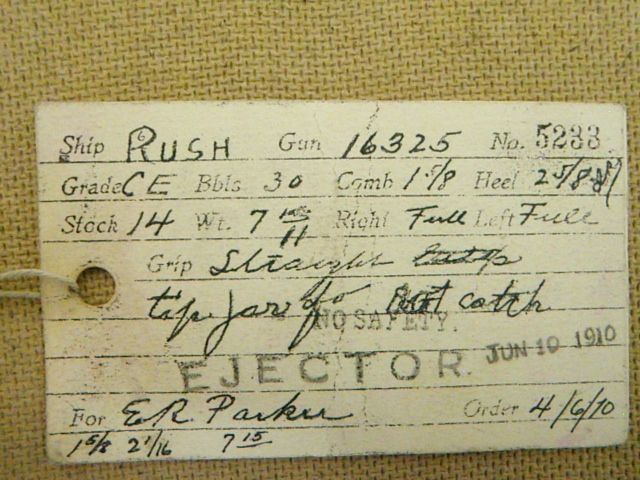 Ship RUSH Gun 16325 No. 5233
Grade CE Bbls 30 Comb 1 5/8 Heel 2 5/8
Stock 14 Wt. 7 11 Right Full Left Full
Grip Straight
tip. for catch
NO SAFETY.
EJECTOR. JUN 10 1910
For E.R. Parker Order 4/6/10
1 5/8 2 1/16 7 15